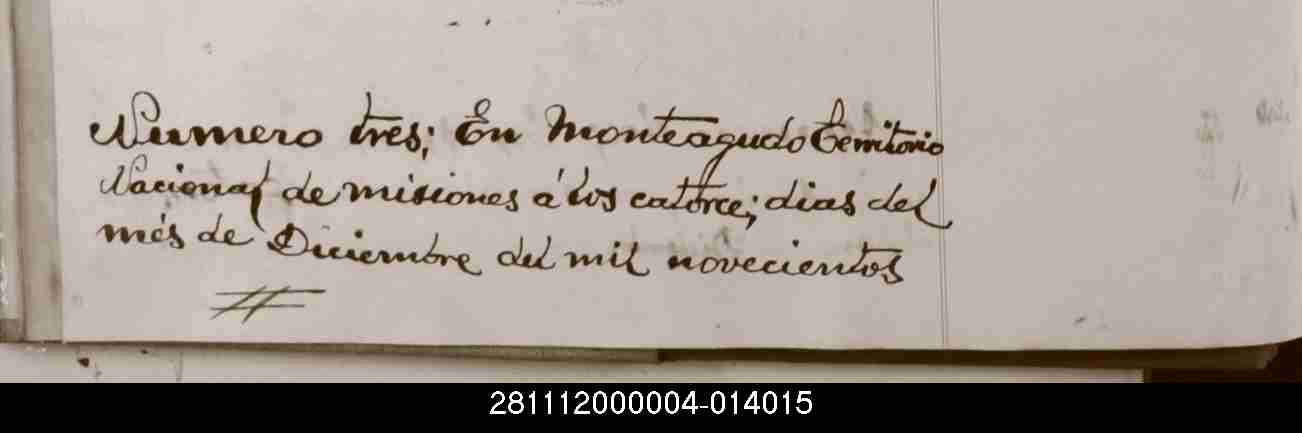 Numero tres; En Monteagudo Territorio
Nacional de misiones á los catorce; dias del
més de Diciembre del mil novecientos
281112000004-014015